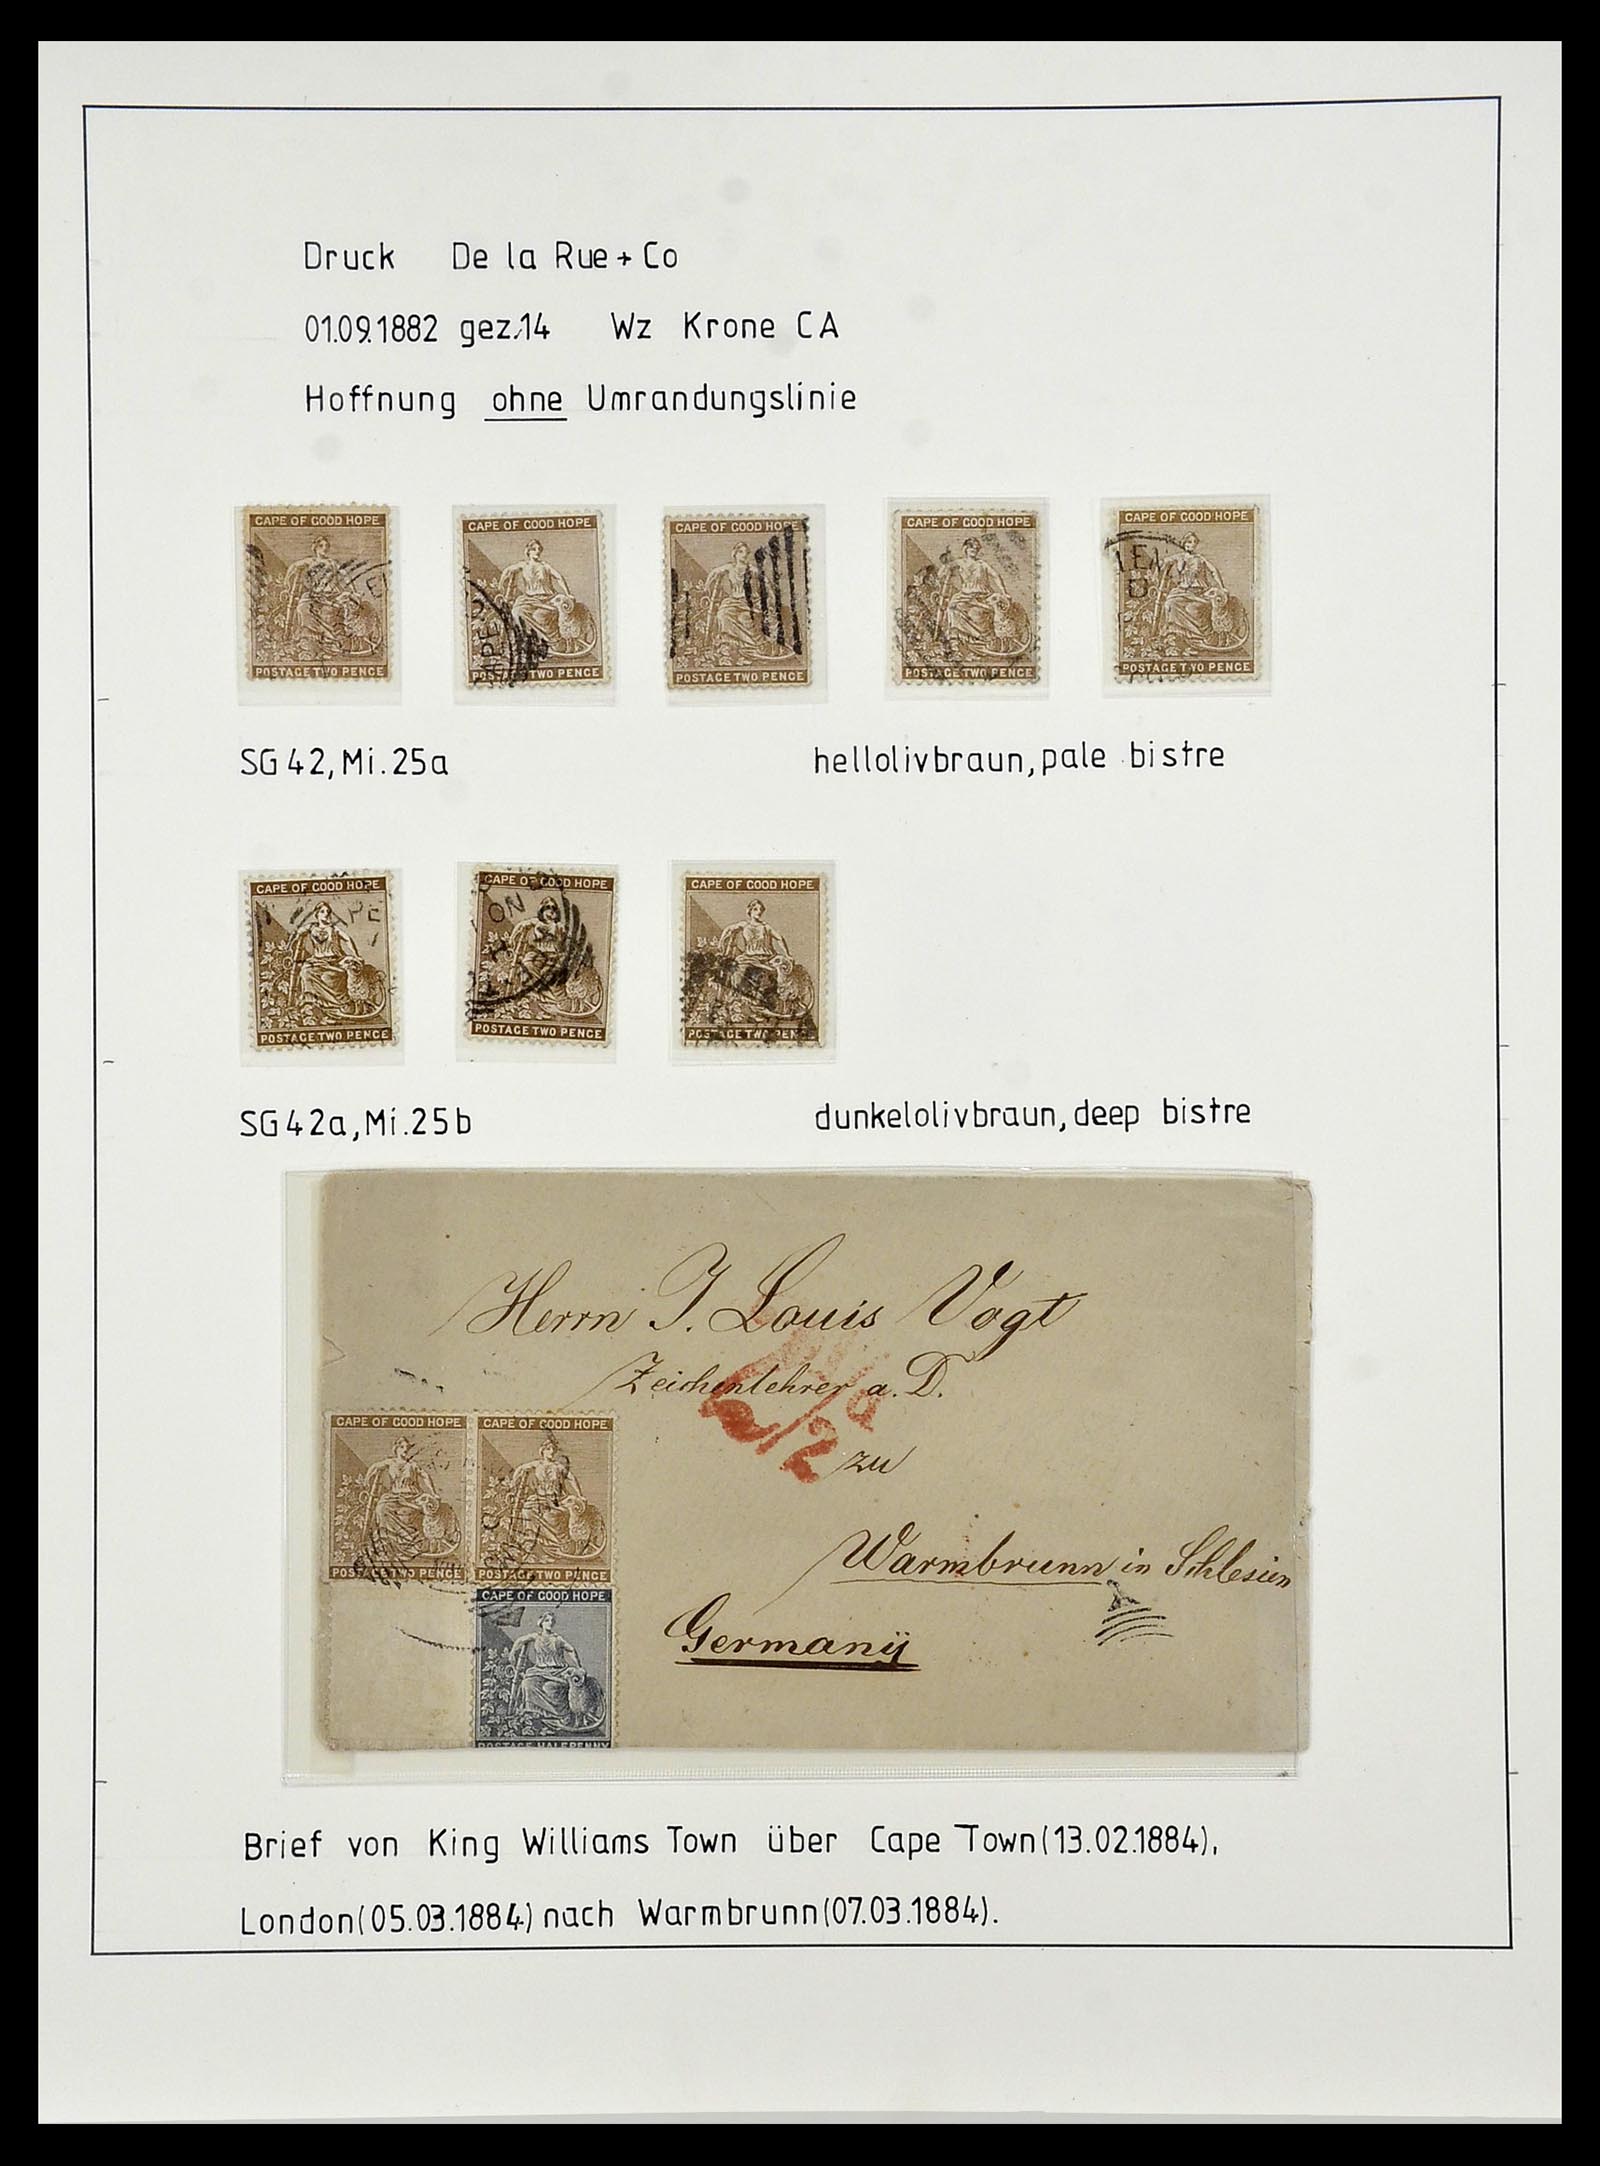 Druck De la Rue + Co
01.09.1882 gez.14 Wz Krone CA
Hoffnung ohne Umrandungslinie
CAPE OF GOOD HOPE CAPE OF GOOD HOPE CAPE OF GOOD HOPE CAPE OF GOOD HOPE CAPE OF GOOD HOPE
POSTAGE TWO PENCE POSTAGE TWO PENCE POSTAGE TWO PENCE POSTAGE TWO PENCE POSTAGE TWO PENCE
SG 42, Mi. 25a hellolivbraun, pale bistre
CAPE OF GOOD HOPE CAPE OF GOOD HOPE CAPE OF GOOD HOPE
POSTAGE TWO PENCE POSTAGE TWO PENCE POSTAGE TWO PENCE
SG 42a, Mi. 25b dunkelolivbraun, deep bistre
Herrn J. Louis Vogt
Zeichenlehrer a. D.
zu
Warmbrunn in Schlesien
Germany
CAPE OF GOOD HOPE CAPE OF GOOD HOPE
POSTAGE TWO PENCE POSTAGE TWO PENCE
CAPE OF GOOD HOPE
POSTAGE HALFPENNY
Brief von King Williams Town über Cape Town (13.02.1884),
London (05.03.1884) nach Warmbrunn (07.03.1884).